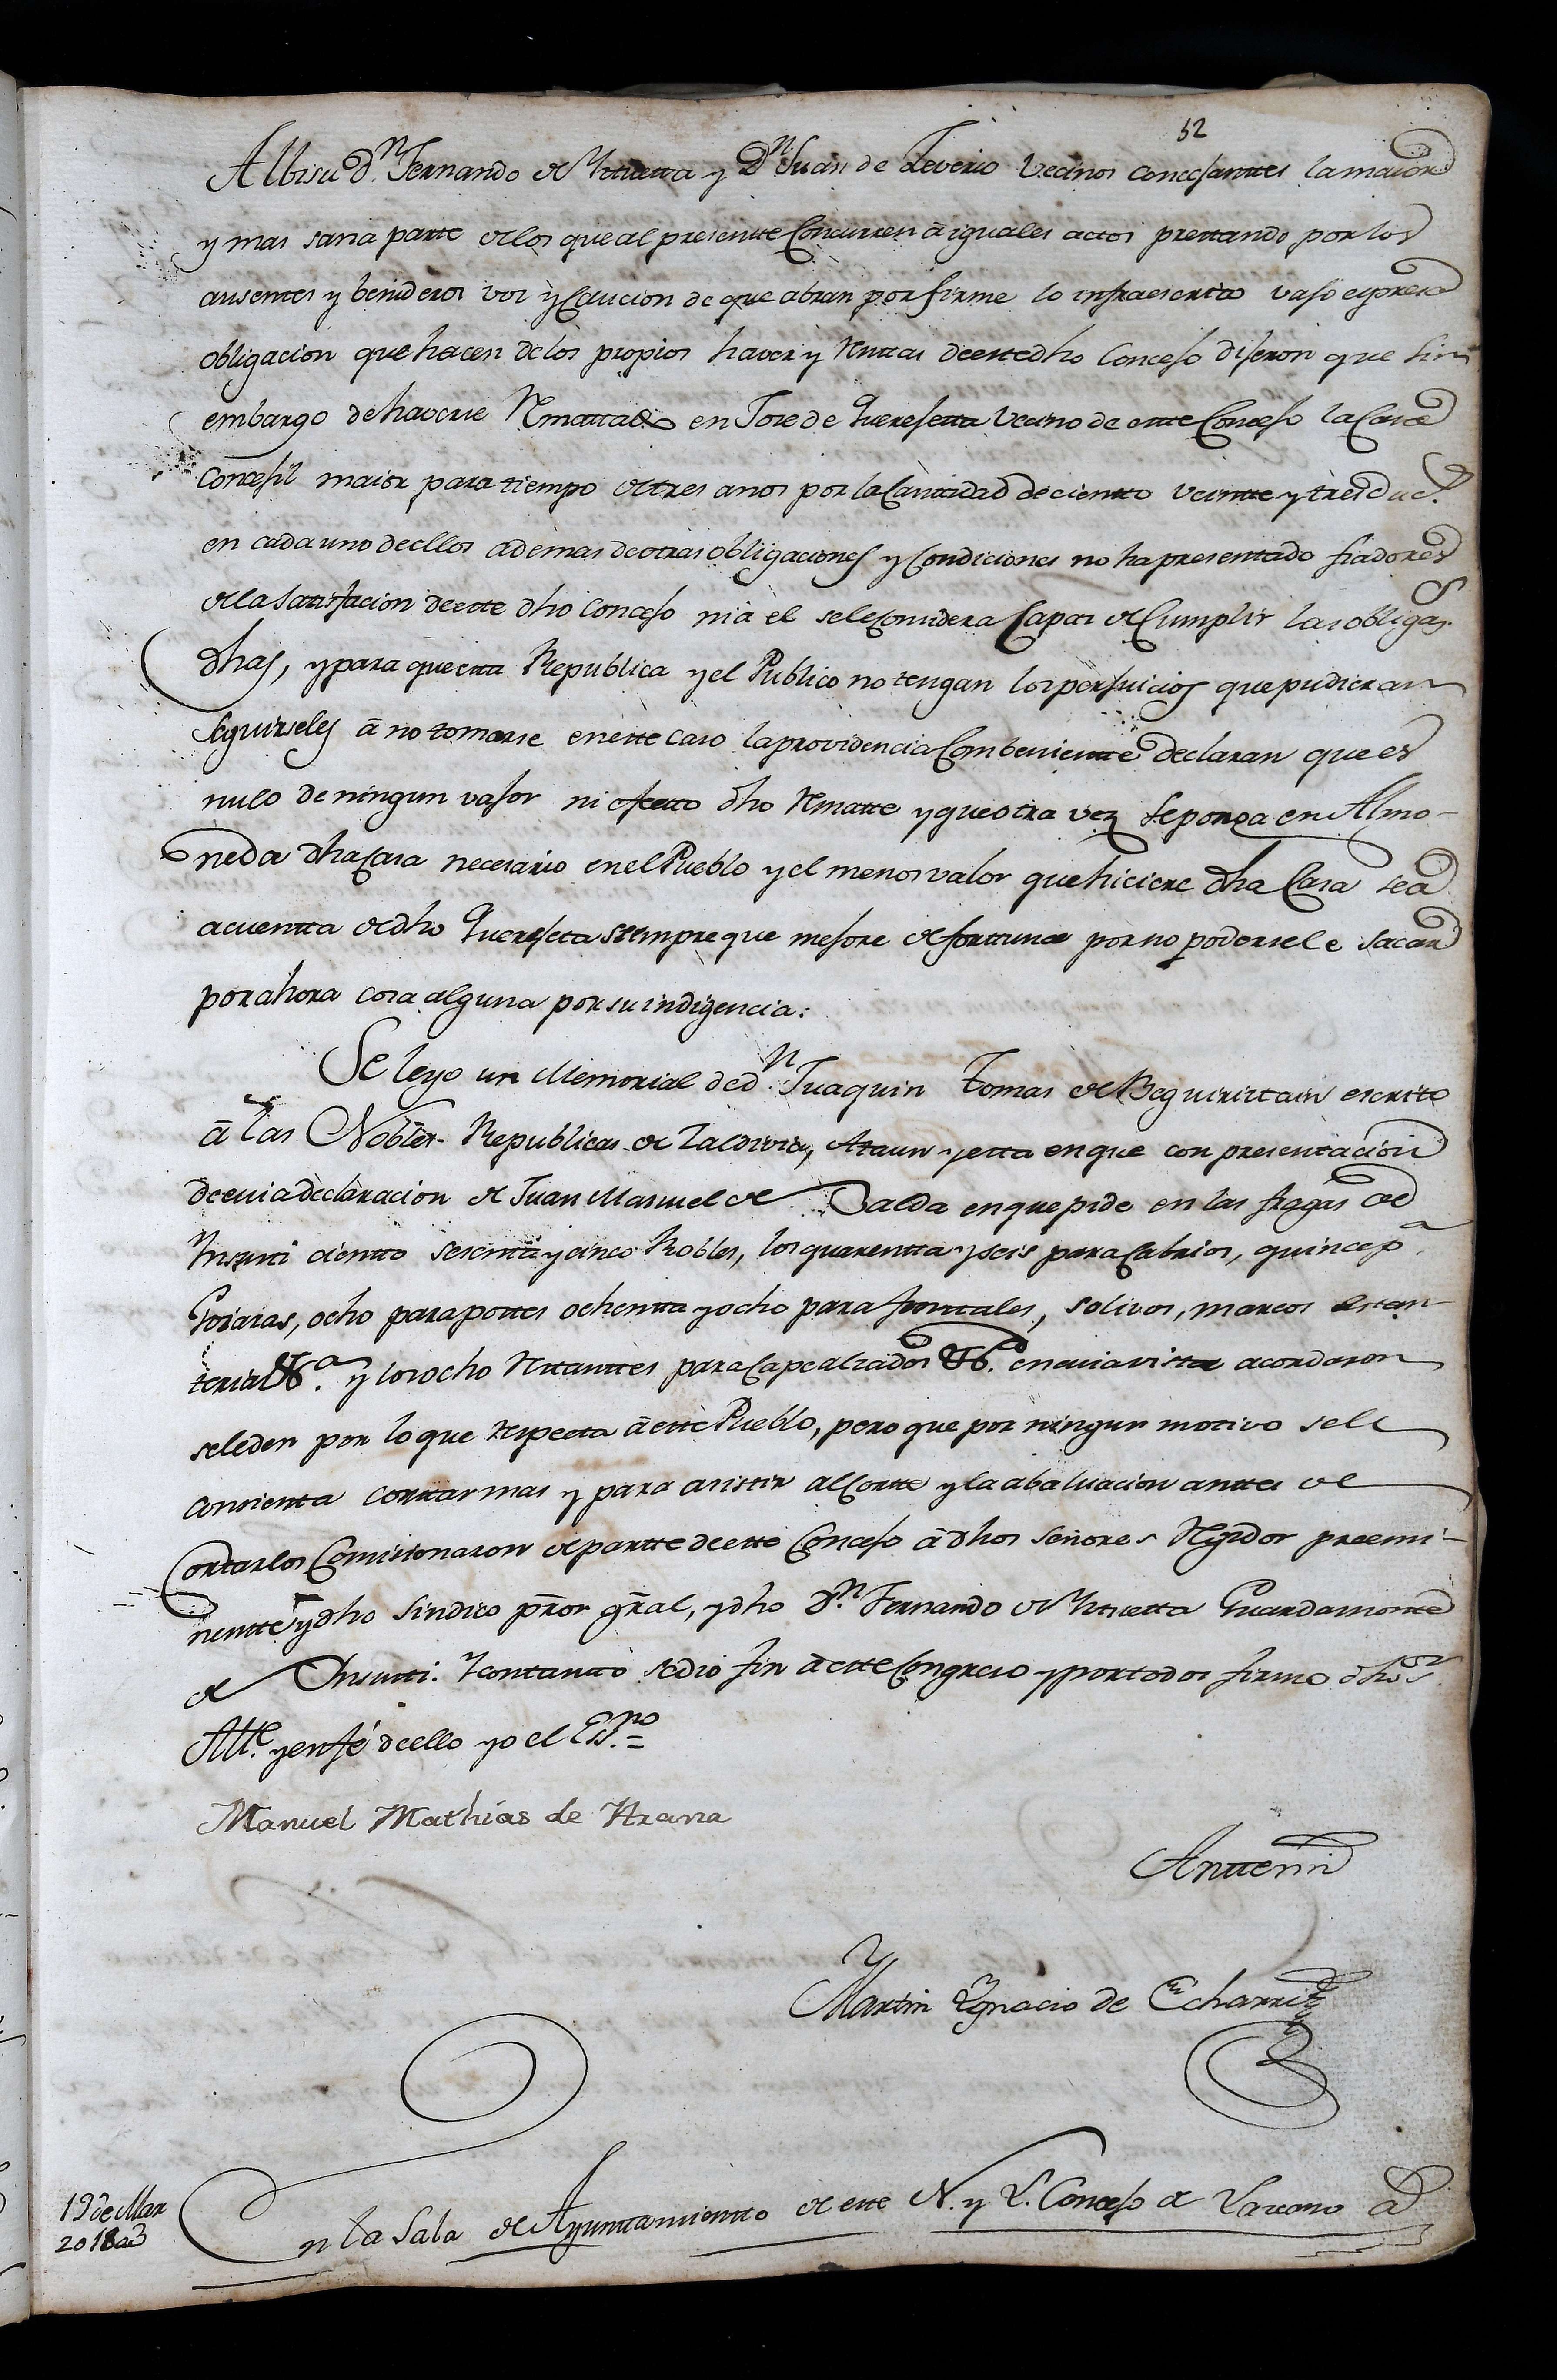 52
Albisu dn. Fernando de Yrtuetta y Dn. Juan de Leverio Vecinos concejanttes la maior
y mas sana parte de los que al presentte Concurren â iguales actos prestando por los
ausentes y benideros voz y Caucion de que abran por firme lo infraescrito vajo expresa
obligacion que hacen de los propios haver y Renttas de este dho Concejo dijeron que sin
embargo de haverse Remattado en Jose de Querejetta Vecino de estte Concejo la Casa
Concejil maior para tiempo de tres anos por la Canttidad de ciento veintte y tres duc.s
en cada uno de ellos ademas de otras obligaciones y Condiciones no ha presentado fiadores
de la Satisfacion de este dho Concejo ni â el se le Considera Capaz de Cumplir las obligas.
dhas, y para que esta Republica y el Publico no tengan los perjuicios que pudieran
seguirseles â no tomarse en este caso la providencia Combenientte declaran que es
nulo de ningun valor ni efecto dho Rematte y que otra vez se ponga en Almo-
neda dha Casa necesario en el Pueblo y el menos valor que hiciere dha Casa sea
a cuentta de dho Querejeta siempre que mejore de forttuna por no podersele sacar
por ahora cosa alguna por su indigencia:
Se leyo un Memorial de dn. Juaquin Tomas de Beguiristain escrito
â las Nobles Republicas de Zaldivia, Ataun y esta en que con presentacion
de en via declaracion de Juan Manuel de Zalda en que pide en las fragas de
Insusti cientto sesenta y cinco Robles, los quarentta y seis para Cabrios, quince pa.
Goiaras, ocho para postes ochentta y ocho para fronttales, solivos, marcos estan-
terias &a. y los ocho Restanttes para Capealzados &a. en cuia vista acordaron
se le den por lo que respecta â este Pueblo, pero que por ningun motivo se le
consienta corttar mas y para asistir al Cortte y la abaluacion anttes de
Cortarlos Comisionaron de partte de este Concejo â dhos Señores Regidor preemi-
nentte y dho Sindico pror gral, y dho Dn. Fernando de Yrtuetta Guardamontte
de Insusti. Y con tantto se dio fin â este Congreso y por todos firmo dho Sr.
Alle. y en fé de ello yo el Ess.no=
Manuel Mathias de Arana
Anttemi
Martin Ygnacio de Echarri
19 de Mar
zo 1803
En la Sala de Ayunttamientto de este N. y L. Concejo de Lazcano a